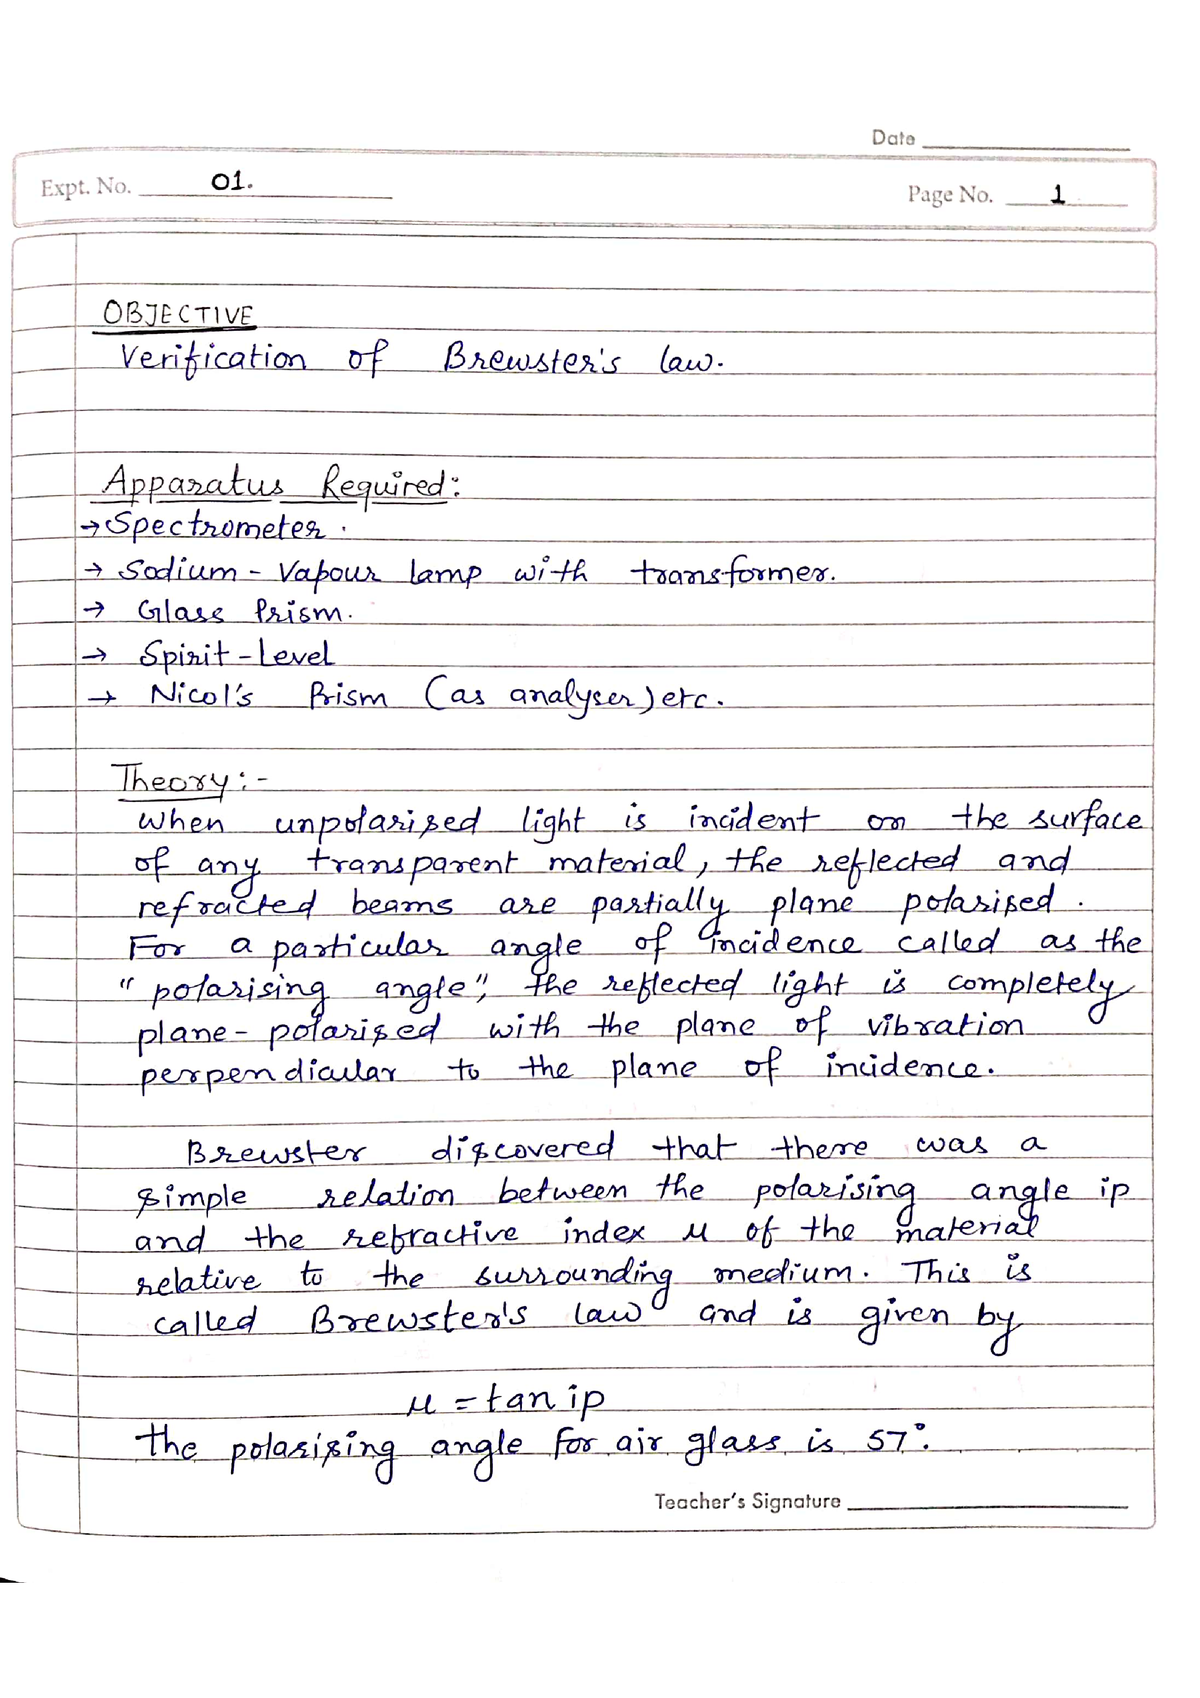 Date
Expt. No. 01.
Page No. 1
OBJECTIVE
Verification of Brewster's law.
Apparatus Required:
→ Spectrometer.
→ Sodium - Vapour lamp with transformer.
→ Glass Prism.
→ Spirit - Level
→ Nicol's Prism (as analyser) etc.
Theory : -
When unpolarised light is incident on the surface
of any transparent material, the reflected and
refracted beams are partially plane polarised.
For a particular angle of incidence called as the
" polarising angle", the reflected light is completely
plane - polarised with the plane of vibration
perpendicular to the plane of incidence.
Brewster discovered that there was a
simple relation between the polarising angle ip
and the refractive index μ of the material
relative to the surrounding medium. This is
called Brewster's law and is given by
μ = tan ip
the polarising angle for air glass is 57°.
Teacher's Signature